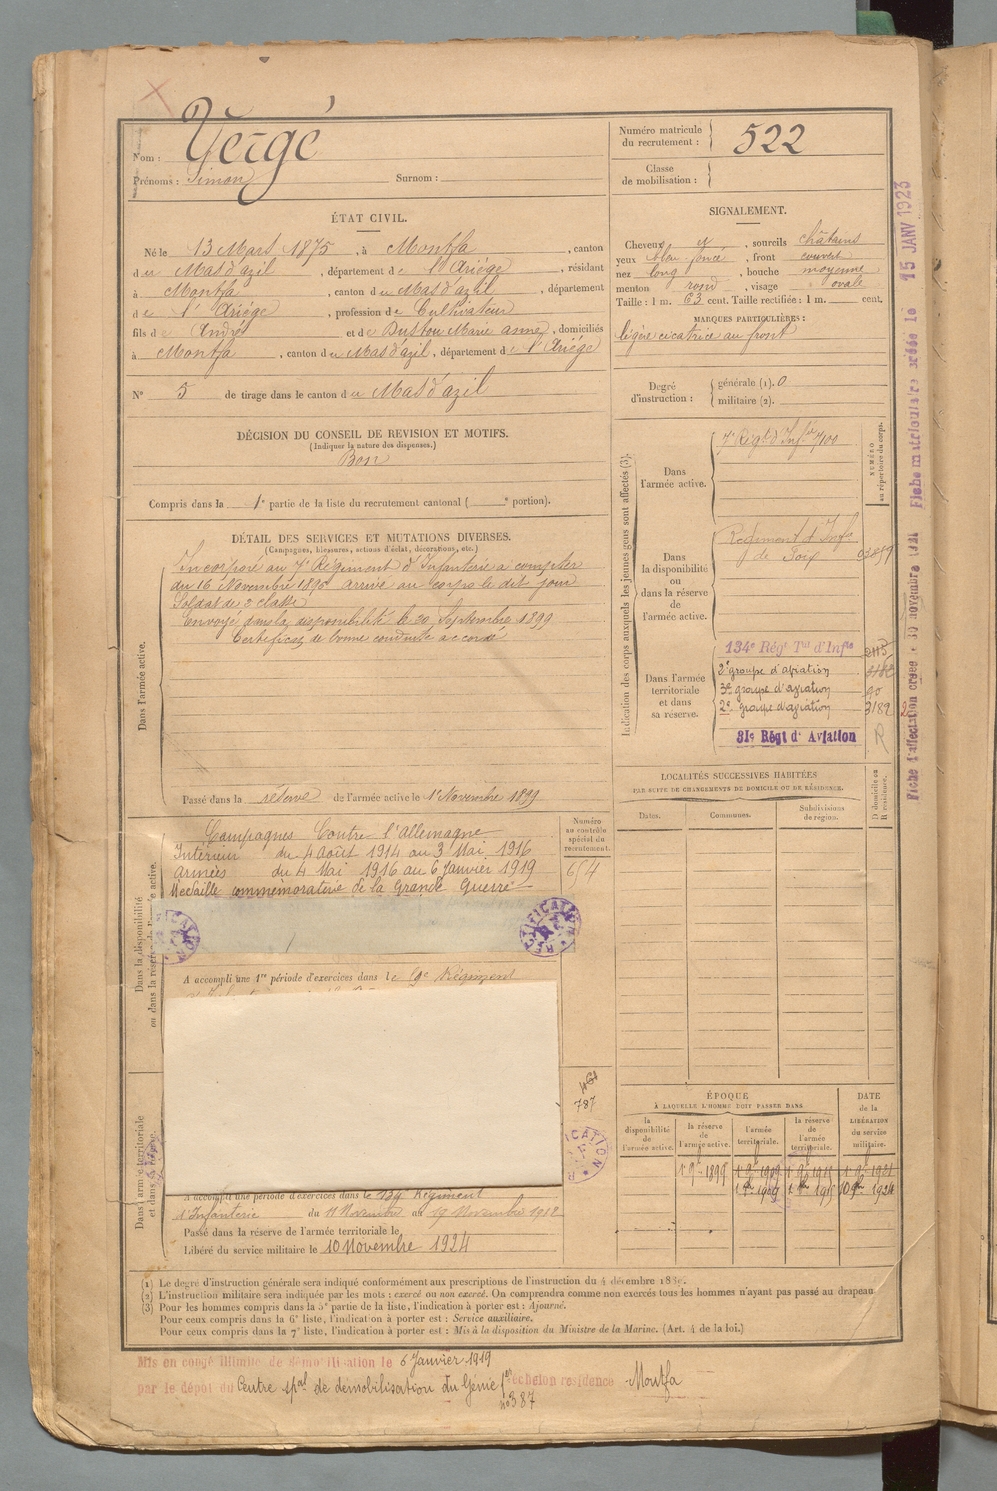 Nom : Vergé
Prénoms : Simon Surnom :
Numéro matricule du recrutement : 522
Classe de mobilisation :
ÉTAT CIVIL.
Né le 13 Mars 1875, à Montfa, canton
du Mas d'azil, département de l'Ariége, résidant
à Montfa, canton du Mas d'azil, département
de l'Ariége, profession de Cultivateur
fils de André et de Dustou Marie anne, domiciliés
à Montfa, canton du Mas d'azil, département de l'Ariége
N° 5 de tirage dans le canton du Mas d'azil
DÉCISION DU CONSEIL DE REVISION ET MOTIFS.
(Indiquer la nature des dispenses.)
Bon
Compris dans la 1e partie de la liste du recrutement cantonal ( e portion).
SIGNALEMENT.
Cheveux et, sourcils châtains
yeux bleu foncé, front couvert
nez long, bouche moyenne
menton rond, visage ovale
Taille : 1 m. 63 cent. Taille rectifiée : 1 m. cent.
MARQUES PARTICULIÈRES :
légère cicatrice au front
Degré d'instruction : générale (1). 0
militaire (2).
DÉTAIL DES SERVICES ET MUTATIONS DIVERSES.
(Campagnes, blessures, actions d'éclat, décorations, etc.)
Dans l'armée active.
Incorporé au 7e Régiment d'Infanterie à compter
du 16 Novembre 1896 arrivé au corps le dit jour
Soldat de 2e classe
Envoyé dans la disponibilité le 20 Septembre 1899
Certificat de bonne conduite accordé
Passé dans la réserve de l'armée active le 1er Novembre 1899
Dans la disponibilité ou dans la réserve de l'armée active.
Campagnes Contre l'Allemagne
Intérieur du 4 Août 1914 au 3 Mai 1916
Armées du 4 Mai 1916 au 6 Janvier 1919
Médaille commémorative de la Grande Guerre
Numéro au contrôle spécial du recrutement.
654
RECTIFICATION
A accompli une 1re période d'exercices dans le 9e Régiment
787
Dans l'armée territoriale et dans sa réserve.
A accompli une période d'exercices dans le 134 Régiment
d'Infanterie du 11 Novembre au 19 Novembre 1912
Passé dans la réserve de l'armée territoriale le
Libéré du service militaire le 10 Novembre 1924
Indication des corps auxquels les jeunes gens sont affectés (3).
NUMÉRO au répertoire du corps.
Dans l'armée active.
7e Régt d'Infie 700
Dans la disponibilité ou dans la réserve de l'armée active.
Régiment d'Infie
de Foix
Dans l'armée territoriale et dans sa réserve.
134e Régt Tal d'Infie 2115
2e groupe d'aviation
3e groupe d'aviation 90
2e groupe d'aviation 3182
31e Régt d'Aviation R
LOCALITÉS SUCCESSIVES HABITÉES
PAR SUITE DE CHANGEMENTS DE DOMICILE OU DE RÉSIDENCE.
Dates. Communes. Subdivisions de région. D domicile ou R résidence.
ÉPOQUE
À LAQUELLE L'HOMME DOIT PASSER DANS
DATE de la LIBÉRATION du service militaire.
la disponibilité de l'armée active. la réserve de l'armée active. l'armée territoriale. la réserve de l'armée territoriale.
1 9bre 1899 1 9bre 1909
1 8bre 1909 1 8bre 1915 10 9bre 1924
(1) Le degré d'instruction générale sera indiqué conformément aux prescriptions de l'instruction du 4 décembre 1889.
(2) L'instruction militaire sera indiquée par les mots : exercé ou non exercé. On comprendra comme non exercés tous les hommes n'ayant pas passé au drapeau.
(3) Pour les hommes compris dans la 5e partie de la liste, l'indication à porter est : Ajourné.
Pour ceux compris dans la 6e liste, l'indication à porter est : Service auxiliaire.
Pour ceux compris dans la 7e liste, l'indication à porter est : Mis à la disposition du Ministre de la Marine. (Art. 4 de la loi.)
Mis en congé illimité de démobilisation le 6 Janvier 1919
par le dépôt du Centre spal de démobilisation du Génie 1er échelon résidence Montfa
n° 387
Fiche d'affectation créée 30 novembre 1921 Fiche matriculaire créée le 15 JANV 1923